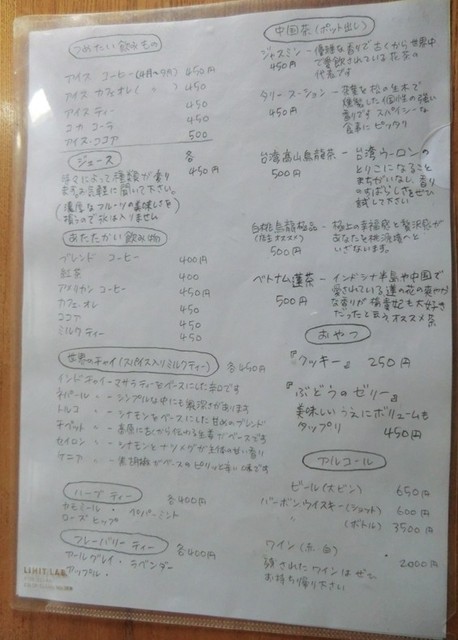 つめたい飲みもの
アイス コーヒー(4月~9月) 450円
アイス カフェオレ( 〃 ) 450
アイス ティー 450
コカ コーラ 450
アイス・ココア 500
ジュース 各450円
季節によって種類が変り
ますお気軽に聞いて下さい。
(濃厚なフルーツの美味しさを
損うので氷は入りません)
あたたかい飲み物
ブレンド コーヒー 400円
紅茶 400
アメリカン コーヒー 450円
カフェ・オレ 450
ココア 450
ミルクティー 450
世界のチャイ(スパイス入りミルクティー) 各450円
インドチャイ-マサラティーをベースにした辛口です
ネパール 〃 - シンプルな中にも奥深さがあります
トルコ 〃 - シナモンをベースにした甘めのブレンド
チベット 〃 - 高原に古くから伝わる生姜がベースです
セイロン 〃 - シナモンとナツメグが主体の甘い香り
ケニア 〃 - 黒胡椒がベースのピリッと辛い味です
ハーブ ティー 各400円
カモミール ・ ペパーミント
ローズ ヒップ
フレーバリー ティー 各400円
アールグレイ ・ ラベンダー
アップル ・
LIHIT LAB.
中国茶(ポット出し)
ジャスミン - 優雅な香りで古くから世界中
450円 で愛飲されている花茶の
代表デす
タリースーション - 茶葉を松の生木で
450円 燻製した個性の強い
香りです スパイシーな
食事に ピッタリ
台湾高山烏龍茶 - 台湾ウーロンの
500円 とりこになること
まちがいなし、香りの
すばらしさをぜひ
試して下さい
白桃烏龍極品 - 極上の幸福感と贅沢感が
(店主オススメ) あなたを桃源境へと
500円 いざないます。
ベトナム蓮茶 - インドシナ半島や中国で
500円 愛されている蓮の花の爽やか
な香りが 楊貴妃も大好き
だったと言う オススメ茶
おやつ
『クッキー』 250円
『ぶどうのゼリー』
美味しいうえにボリュームも
タップリ 450円
アルコール
ビール(小ビン) 650円
バーボンウイスキー(ショット) 600円
〃 (ボトル) 3500円
ワイン(赤・白) 2000円
残されたワインはぜひ
お持ち帰り下さい